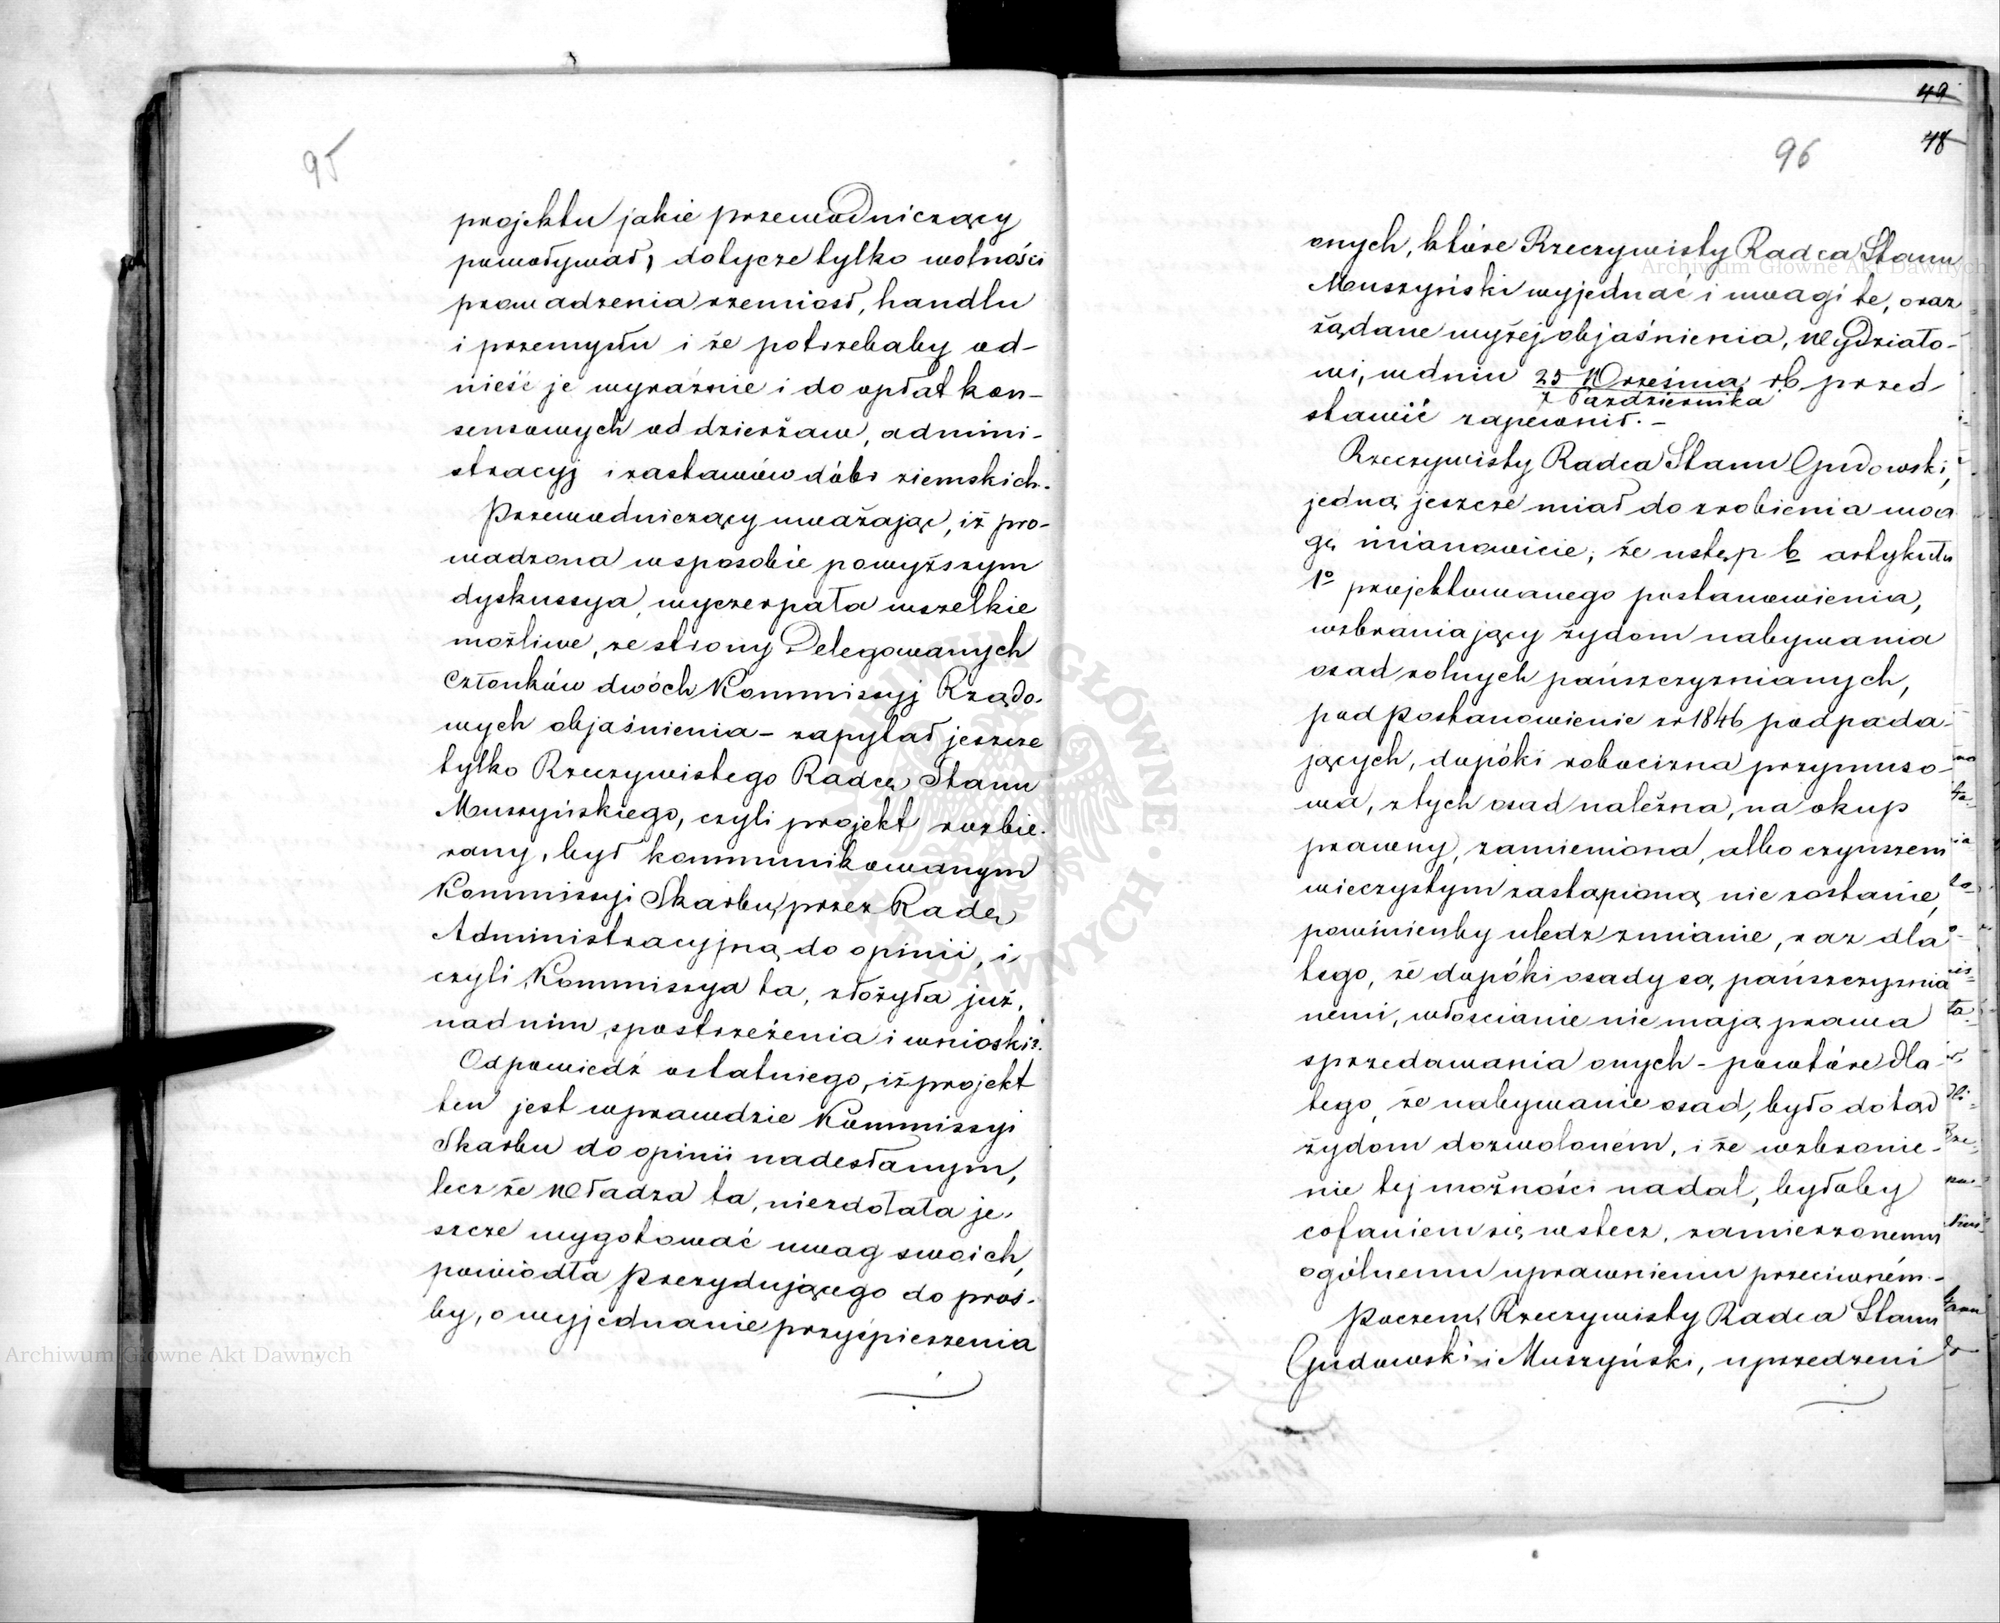 95
projektu jakie przewodniczący
powoływał, dotycze tylko wolności
prowadzenia rzemiosł, handlu
i przemysłu i że potrzebaby od-
nieść je wyraźnie i do opłat kon-
sensowych od dzierżaw, admini-
stracyj i zastawów dóbr ziemskich.
Przewodniczący uważając, iż pro-
wadzona w sposobie powyższym
dyskussya, wyczerpała wszelkie
możliwe, ze strony Delegowanych
Członków dwóch Kommissyj Rządo-
wych objaśnienia – zapytał jeszcze
tylko Rzeczywistego Radcę Stanu
Muszyńskiego, czyli projekt rozbie-
rany, był kommunikowanym
Kommissyi Skarbu, przez Radę
Administracyjną do opinii, i
czyli Kommissya ta, złożyła już,
nad nim spostrzeżenia i wnioski?.
Odpowiedź ostatniego, iż projekt
ten jest wprawdzie Kommissyi
Skarbu do opinii nadesłanym,
lecz że Władza ta, niezdołała je-
szcze wygotować uwag swoich,
powiodła Prezydującego do proś-
by, o wyjednanie przyśpieszenia
49
48
96
onych, które Rzeczywisty Radca Stanu
Muszyński wyjednać i uwagi te, oraz
żądane wyżej objaśnienia, Wydziało-
wi, w dniu 25 Września rb przed-
7 Października
stawić zapewnił. –
Rzeczywisty Radca Stanu Gudowski,
jedną jeszcze miał do zrobienia uwa
gę mianowicie; że ustęp b artykułu
1º projektowanego postanowienia,
wzbraniający żydom nabywania
osad rolnych pańszczyznianych,
pod Postanowienie z r 1846 podpada-
jących, dopóki robocizna przymuso-
wa, z tych osad należna, na okup
prawny, zamieniona, albo czynszem
wieczystym zastąpioną nie zostanie,
powinienby uledz zmianie, raz dla
tego, że dopóki osady są pańszczyznia
nemi, włościanie nie mają prawa
sprzedawania onych – powtóre dla
tego, że nabywanie osad, było dotąd
żydom dozwoloném, i że wzbronie-
nie tej możności nadal, byłoby
cofaniem się wstecz, zamierzonemu
ogólnemu uprawnieniu przeciwném. –
Poczem, Rzeczywisty Radca Stanu
Gudowski i Muszyński, uprzedzeni
Archiwum Główne Akt Dawnych
Archiwum Główne Akt Dawnych
ARCHIWUM GŁÓWNE AKT DAWNYCH